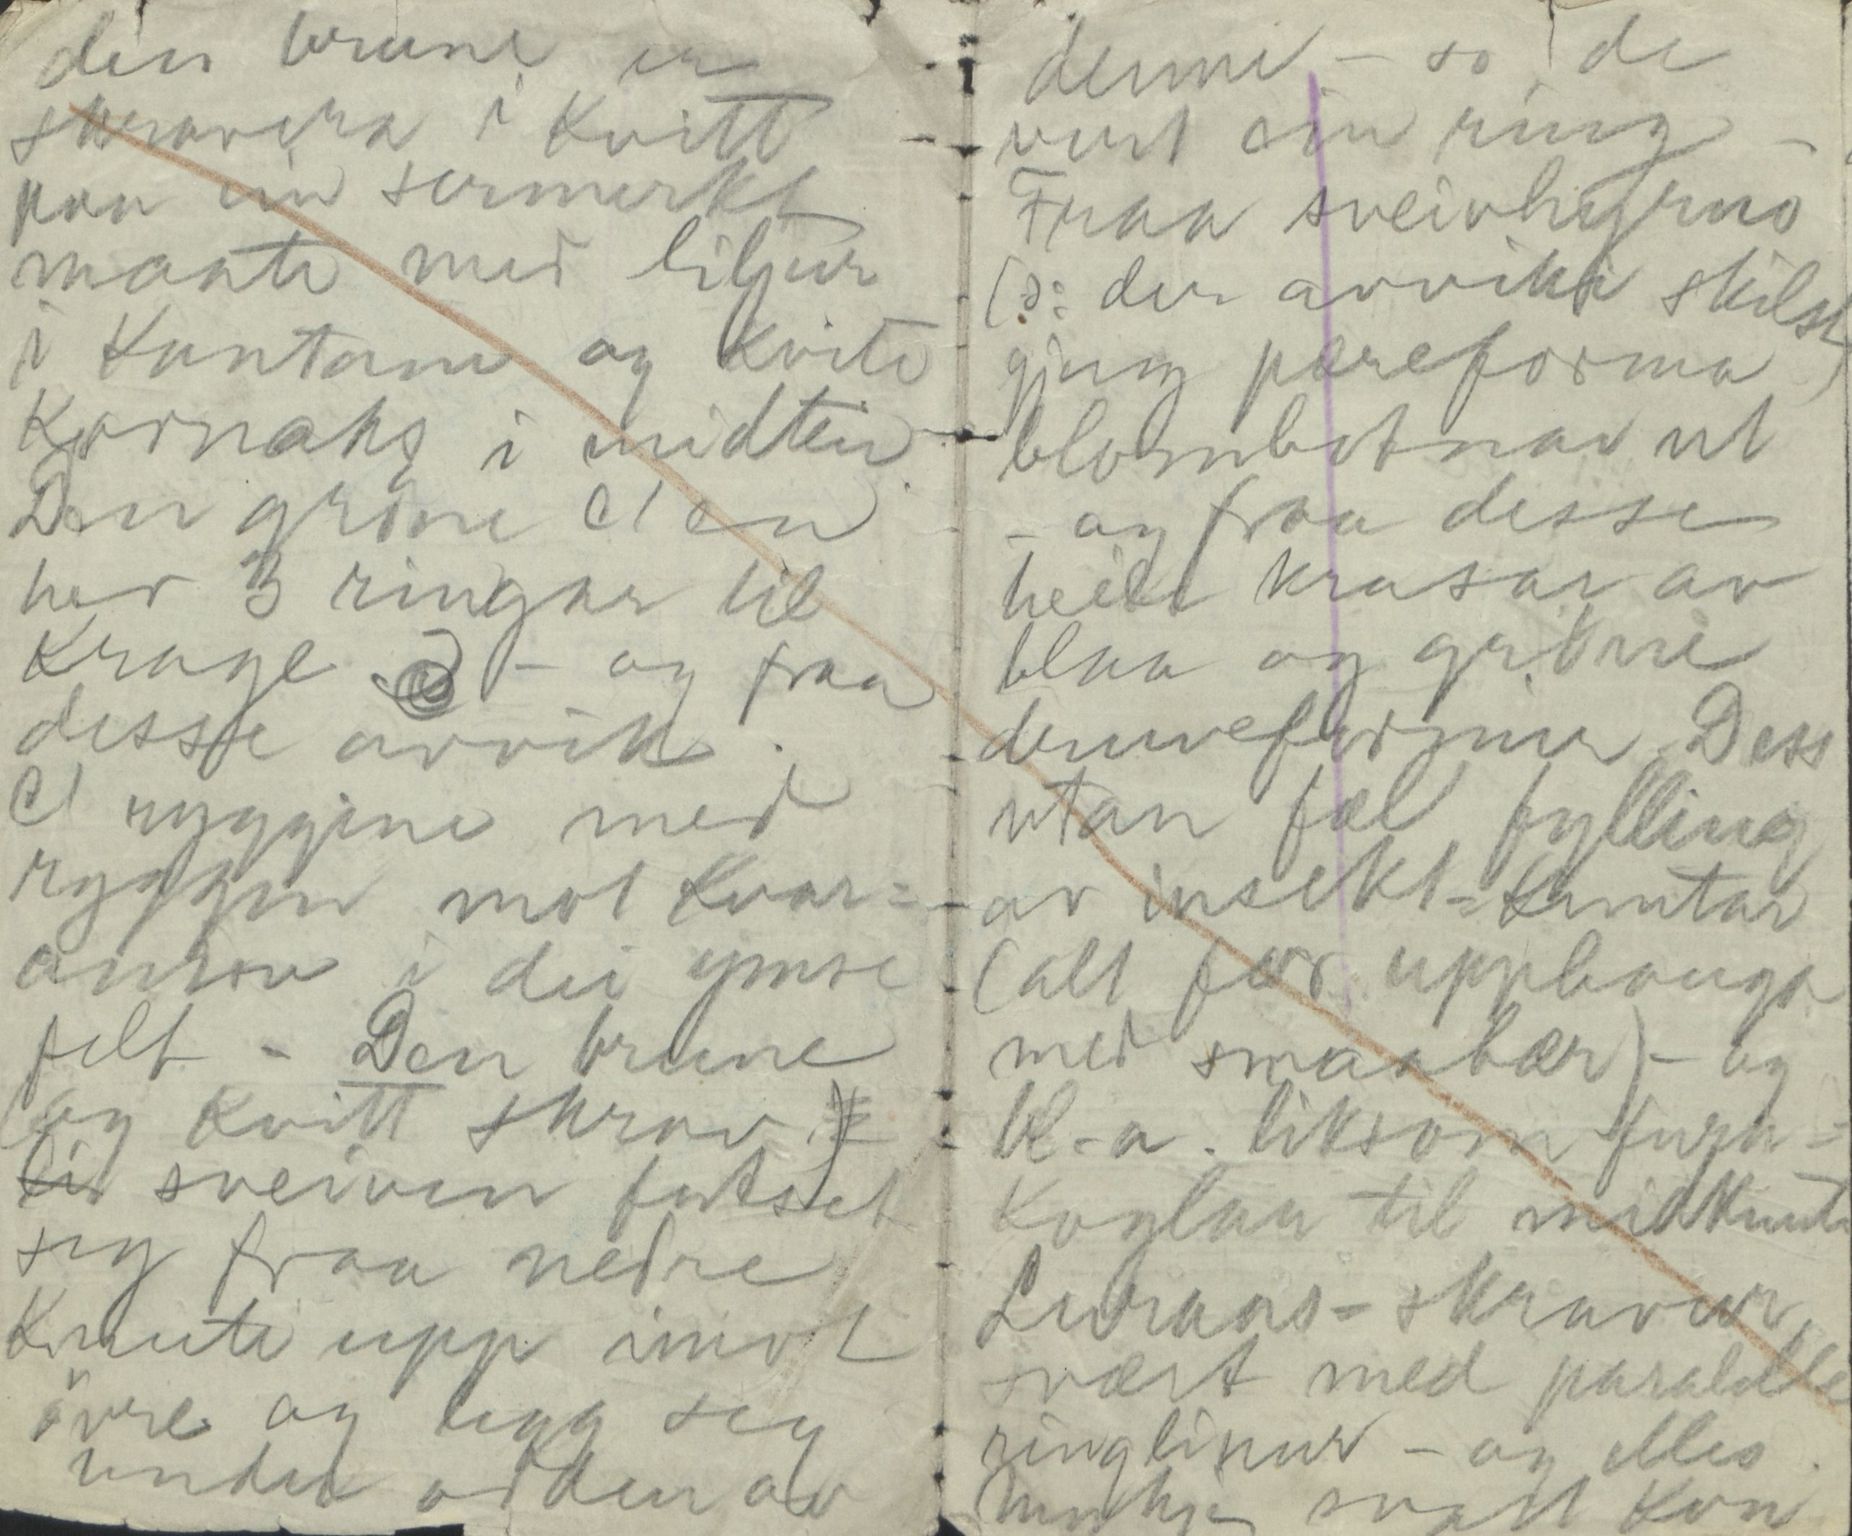 den brune er
skravera i kvitt
paa ein sermerkt
maate med liljur
i kantane og kvite
kornaks i midten.
Den gröne
her 3 ringar til
krage – og fraa
desse avvik.
ryggjene med
ryggen mot kvar=
annan i dei ymse
felt – Den brune
(og kvitt skrav.)
sveiven fortset
seg fraa nedre
knute upp imot
övre og legg seg
under odden av
denne – so de
vert ein ring –
Fraa sveivhyrno
(ɔ: der avviki skilst)
gjeng pæreforma
blombotnar ut
– og fraa desse
heile krusar av
blaa og gröne
druveformer Dess
utan fæl fylling
av insekt=knutar
(alt for uppbunga
med smaabær) – og
bl-a. liksom furu=
koglar til midknute
Luraas=skravur,
svært med paralelle
ringlinur – og elles
svall kon